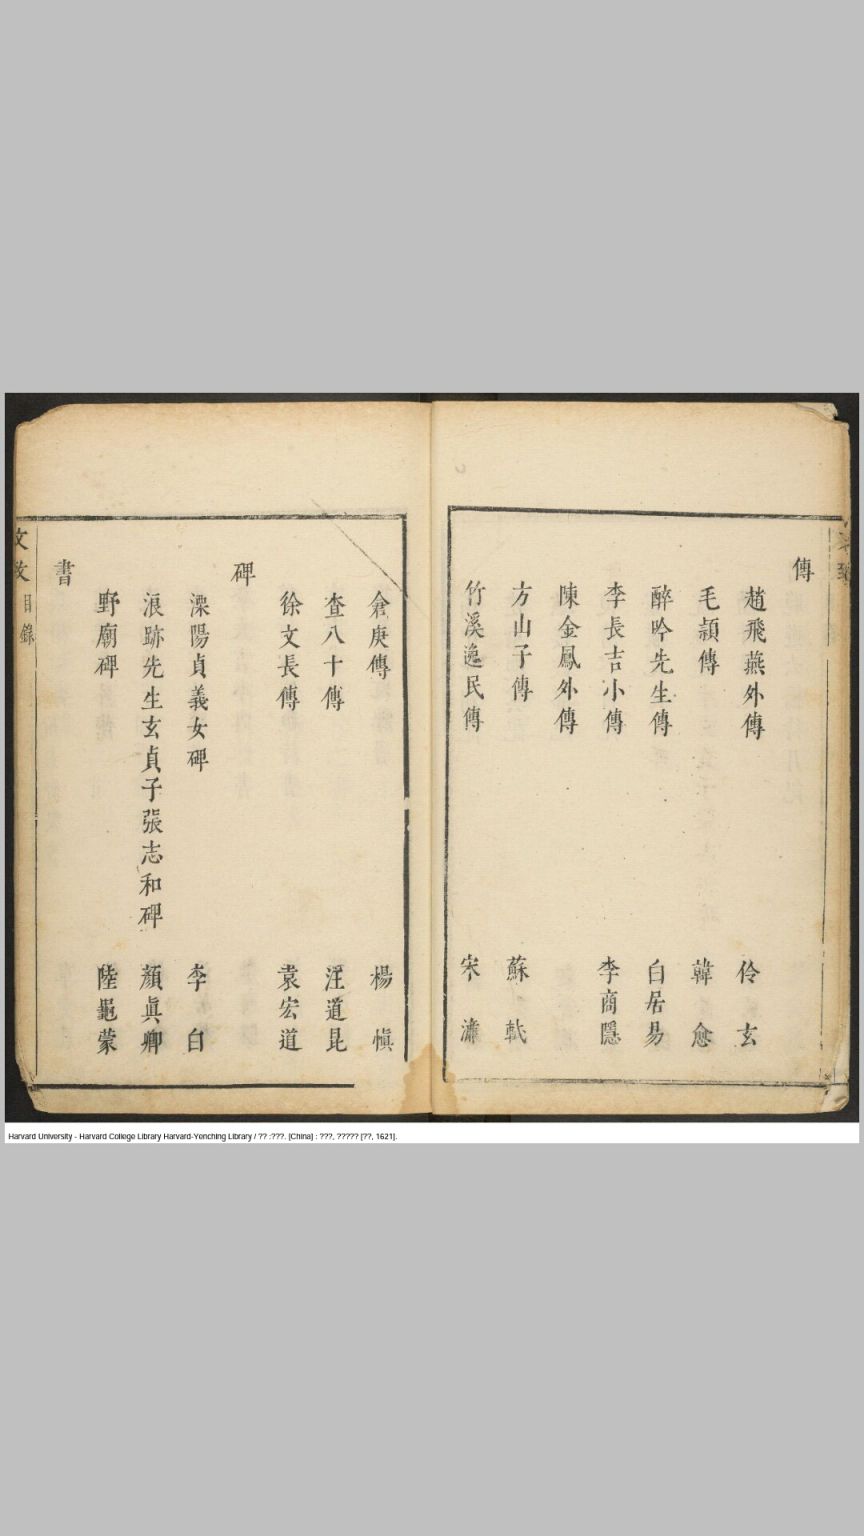 傳
趙飛燕外傳 伶玄
毛頴傳 韓愈
醉吟先生傳 白居易
李長吉小傳 李商隱
陳金鳳外傳
方山子傳 蘇軾
竹溪逸民傳 宋濂
倉庚傳 楊愼
查八十傳 汪道昆
徐文長傳 袁宏道
碑
溧陽貞義女碑 李白
浪跡先生玄貞子張志和碑 顏眞卿
野廟碑 陸龜蒙
書
文致 目錄
Harvard University - Harvard College Library Harvard-Yenching Library / ?? :???. [China] : ???, ????? [??, 1621].